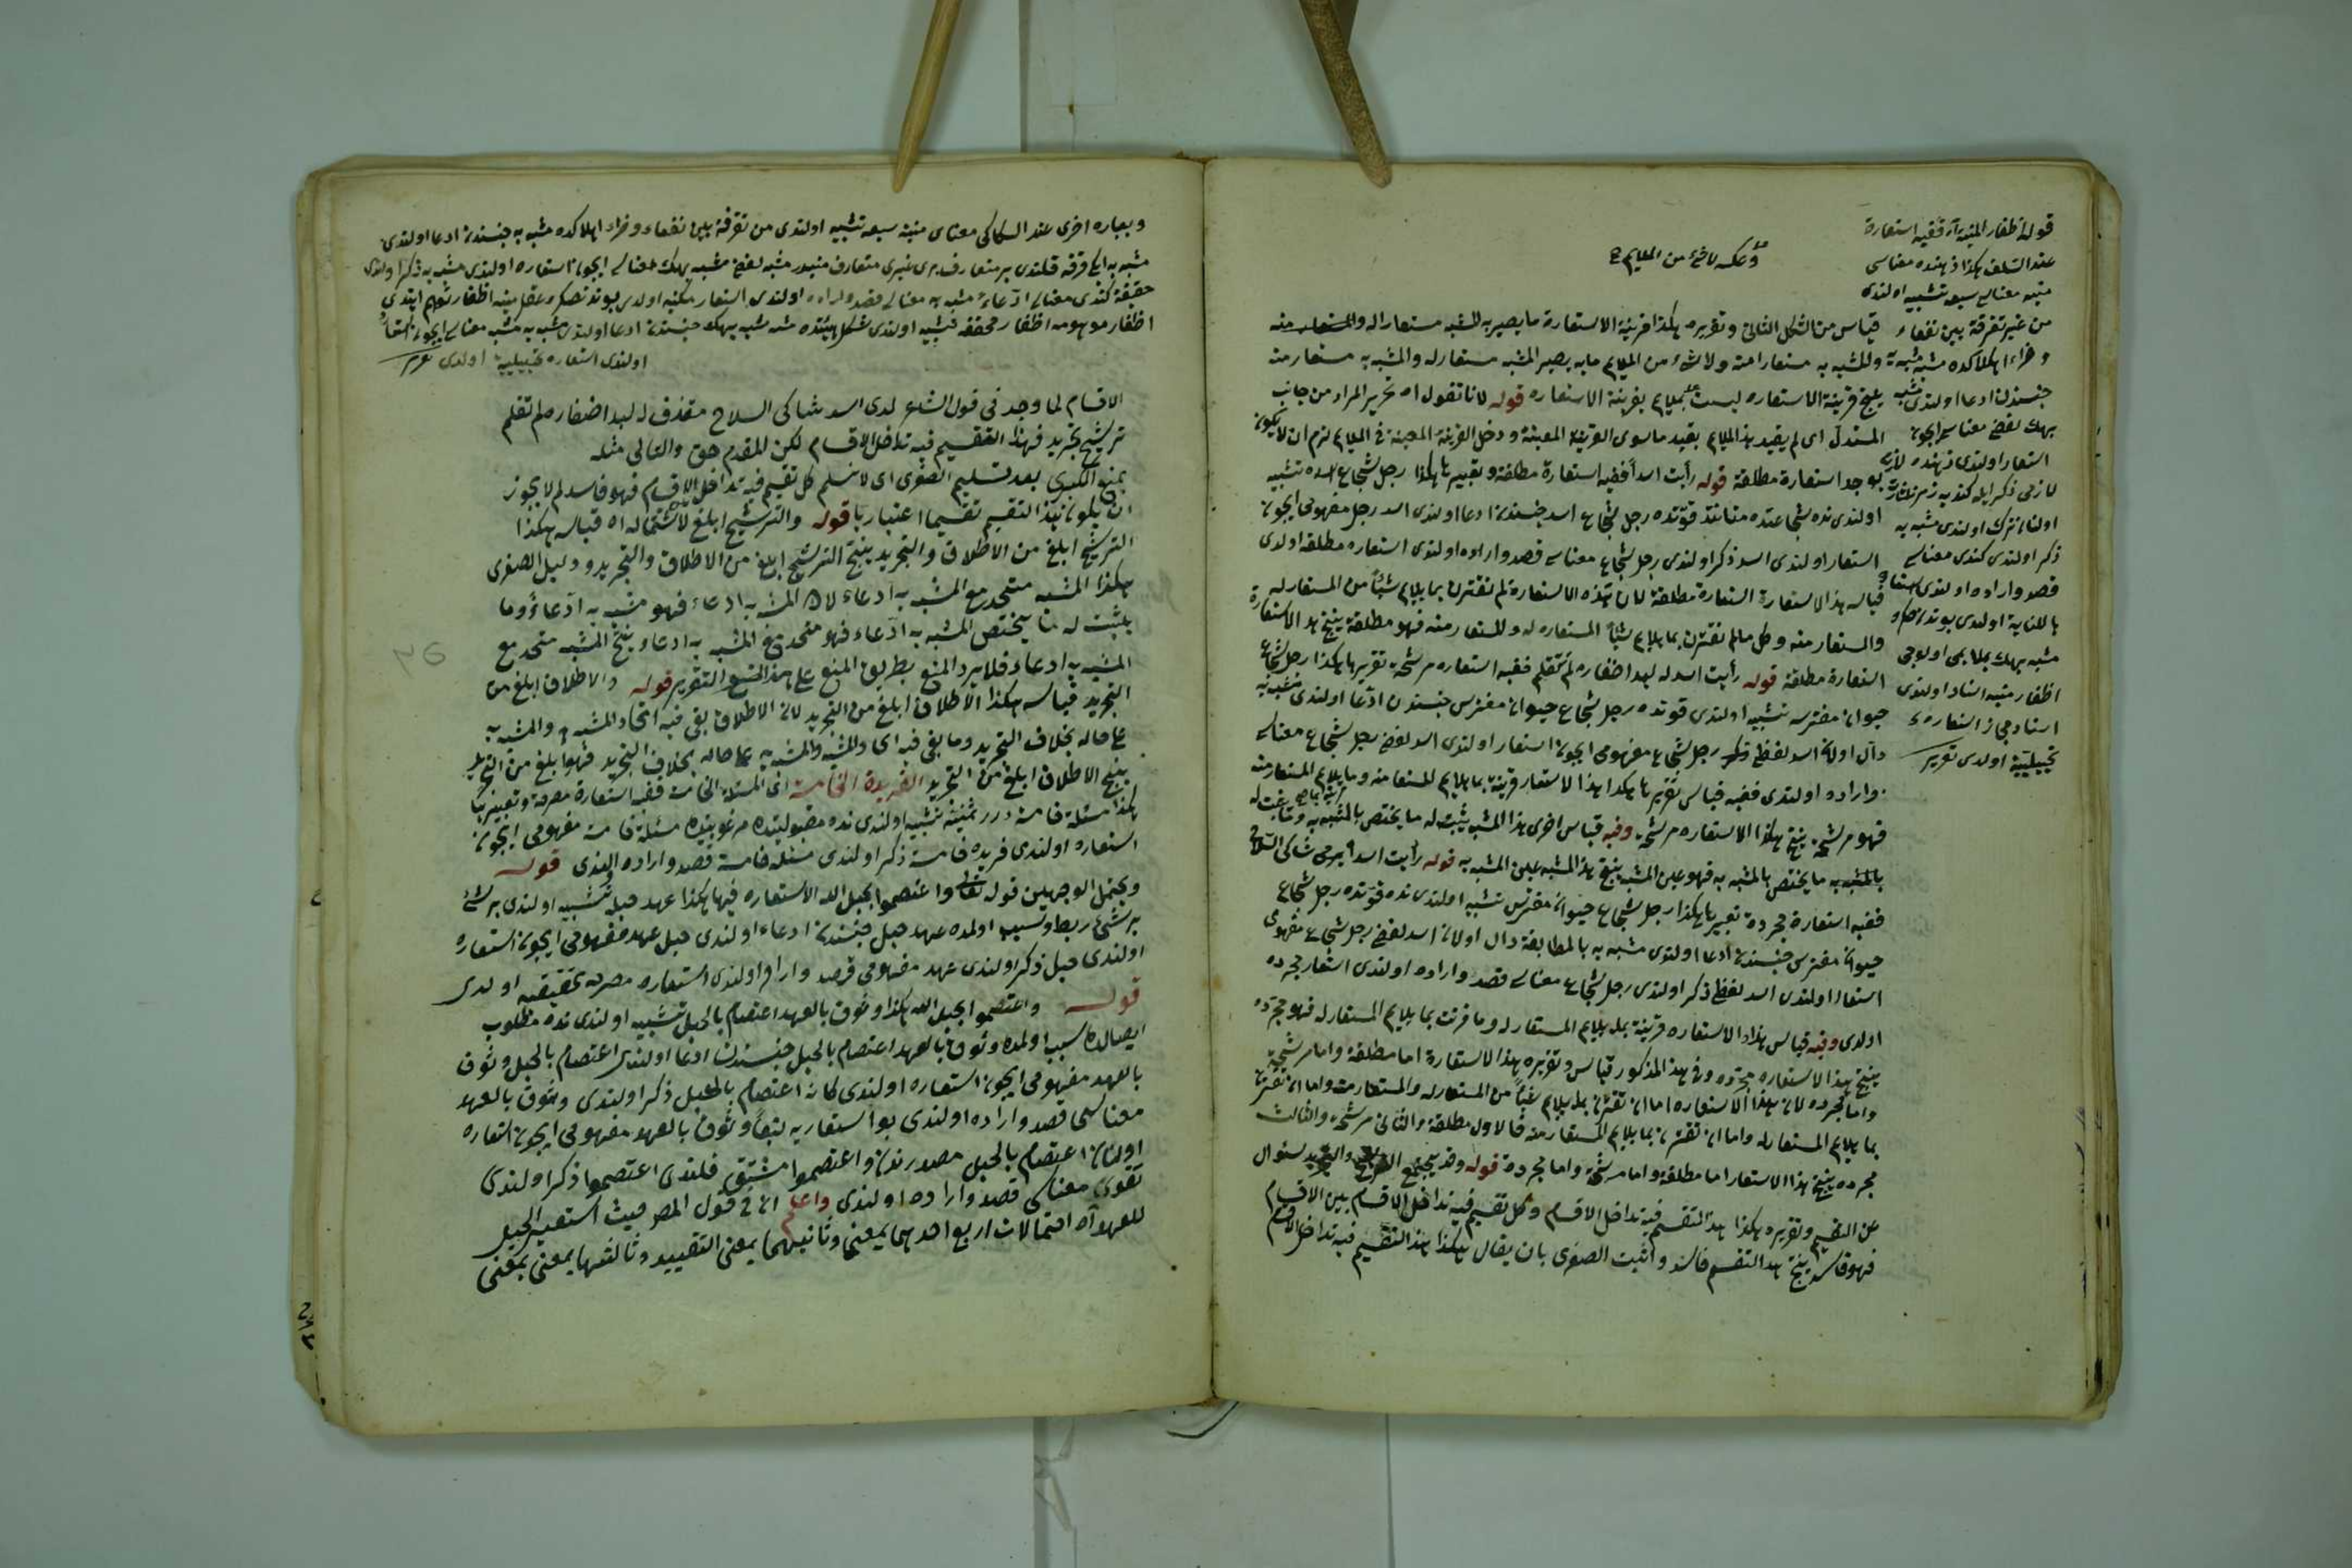 قوله اظفار المنية آه ففيه استعارة
عند السلف هكذا ذهنده معناسى
منيه معناسى سبعه تشبيه اولندى
من غير تفرقة بين نفعاء و
وضراء اهلاكده مشبه مشبه به
جنسندن ادعا اولندى مشبه
استعار اولندى ذهنده
لازمى ذكر ايله كنديه رمز
اولنان ترك اولندى مشبه به
ذكر اولندى كندى معناسى
قصد واراده اولندى استعاره
بالكناية اولدى بوندنصكره
اظفار منيه اسناد اولندى
اسناد مجاز استعارهء
تخييليه اولدى تقرير
وعكسه لا شئ من الملايم
قياس من الشكل الثانى وتقريره هكذا قرينة الاستعارة ما يصير به المشبه مستعارا له والمستعار منه
والمشبه به مستعارا منه ولا شئ من الملايم ما به يصير المشبه مستعارله والمشبه به مستعار منه
ينتج قرينة الاستعاره ليست بملايم بقرينة الاستعاره قوله لانا نقول اه تحرير المراد من جانب
المستدل اى لم يقيد هذا الملايم بقيد ما سوى القرينة المعينة ودخل القرينة المعينة فى الملايم لزم ان لا يكون
يوجد استعارة مطلقة قوله رأيت اسدا ففيه استعارة مطلقة وتعبيرها هكذا رجل شجاع اسده تشبيه
اولندى نده شجاعتده قوتده رجل شجاع اسد جنسندن ادعا اولندى اسد رجل مفهومى ايچون
استعار اولندى اسد ذكر اولندى رجل شجاع معناسى قصد واراده اولندى استعاره مطلقه اولدى
قياسه هذا الاستعارة استعارة مطلقة لان هذه الاستعارة لم تقترن بما يلايم شيئا من المستعار له
والمستعار منه وكل ما لم تقترن بما يلايم شيئا المستعاره له والمستعار منه فهو مطلقة ينتج هذا الاستعارة
استعارة مطلقة قوله رأيت اسد له لبد اظفاره لم تقلم ففيه استعاره مرشحة تقريرها هكذا رجل شجاع
حيوان مفترسه تشبيه اولندى قوتده رجل شجاع حيوان مفترس جنسندن ادعا اولندى مشبه به
دال اولان اسد لفظى رجل شجاع مفهومى ايچون استعار اولندى اسد لفظى رجل شجاع معناسى
واراده اولندى ففيه قياس تقريرها هكذا هذا الاستعار قرينة بما يلايم المستعار منه وما يلايم المستعار منه
فهو مرشحة ينتج هكذا الاستعاره مرشحة وفيه قياس اخرى هذا المشبه يثبت له ما يختص بالمشبه به وما يثبت له
بالمشبه به ما يختص بالمشبه به فهو عين المشبه ينتج هذا المشبه عين المشبه به قوله رأيت اسدا يرمى شاكى السلاح
ففيه استعارة مجردة تعبيرها هكذا رجل شجاع حيوان مفترس تشبيه اولندى نده قوتده رجل شجاع
حيوان مفترس جنسندن ادعا اولندى مشبه به بالمطابقة دال اولان اسد لفظى رجل شجاع مفهومى
استعار اولندى اسد لفظى ذكر اولندى رجل شجاع معناسى قصد واراده اولندى استعار مجرده
اولدى وفيه قياس هذا الاستعاره قرينة بما يلايم المستعار له وما قرنت بما يلايم المستعار له فهو مجرده
ينتج هذا الاستعاره مجرده وفى هذا المذكور قياس وتقريره هذا الاستعارة اما مطلقة واما مرشحة
واما مجرده لان هذا الاستعاره اما ان تقترن بما يلايم شيئا من المستعار له والمستعار منه واما ان تقترن
بما يلايم المستعار له واما ان تقترن بما يلايم المستعار منه فالاول مطلقة والثانى مرشحة والثالث
مجرده ينتج هذا الاستعار اما مطلقة واما مرشحة واما مجردة قوله وقد يجتمع الترشيح والتجريد سؤال
عن التقسيم وتقريره هكذا هذا التقسيم فيه تداخل الاقسام وكل تقسيم فيه تداخل الاقسام بين الاقسام
فهو فاسد ينتج هذا التقسيم فاسد واثبت الصغرى بان يقال هكذا هذا التقسيم فيه تداخل الاقسام
وبعباره اخرى عند السكاكى معناى منيه سبعه تشبيه اولندى من تفرقة بين نفعاء وضراء اهلاكده مشبه به جنسندن ادعا اولندى
مشبه به ايكى فرقه قلندى بر متعارف برى غيرى متعارف منيه در مشبه لفظى مشبه بهك معناسى ايچون استعاره اولندى مشبه به ذكر اولندى
حقيقة كندى معناسى ادعاء مشبه به معناسى قصد واراده اولندى استعار مكنيه اولدى بوندنصكره عقل منيه اظفار توهم ايتدى
اظفار موهومه اظفار محققه تشبيه اولندى شكل هيئتده مشبه مشبه بهك جنسندن ادعا اولندى مشبه به مشبه معناسى ايچون استعار
اولندى استعاره تخييلية اولدى تقرير
الاقسام لما وجد فى قول الشاعر لدى اسد شاكى السلاح مقذف له لبد اضفاره لم تقلم
ترشيح تجريد فهذا التقسيم فيه تداخل الاقسام لكن المقدم حق والتالى مثله
بمنع الكبرى بعد تسليم الصغرى اى لا نسلم كل تقسيم فيه تداخل الاقسام فهو فاسد لم لا يجوز
ان يكون هذا التقسيم تقسيما اعتباريا قوله والترشيح ابلغ لاشتماله اه قياسه هكذا
الترشيح ابلغ من الاطلاق والتجريد ينتج الترشيح ابلغ من الاطلاق والتجريد ودليل الصغرى
هكذا المشبه متحد مع المشبه به ادعاء لان المشبه به ادعاء فهو مشبه به ادعاء وما
يثبت له ما يختص المشبه به ادعاء فهو متحد مع المشبه به ادعاء ينتج المشبه متحد مع
المشبه به ادعاء فلا يرد المنع بطريق المنع على هذا التقرير قوله والاطلاق ابلغ من
التجريد قياسه هكذا الاطلاق ابلغ من التجريد لان الاطلاق بقى فيه اتحاد المشبه والمشبه به
على حاله بخلاف التجريد وما بقى فيه اى والمشبه والمشبه به على حاله بخلاف التجريد فهو ابلغ من التجريد
ينتج الاطلاق ابلغ من التجريد الفريدة الخامسة اى المسئلة الخامسة ففيه استعارة مصرحة وتعبيرها
هكذا مسئلة خامسة درر ثمينه تشبيه اولندى نده مقبوليتده مرغوبيتده مسئلة خامسة مفهومى ايچون
استعاره اولندى فريده خامسة ذكر اولندى مسئله خامسة قصد واراده اولندى قوله
ويحتمل الوجهين قوله تعالى واعتصموا بحبل الله الاستعاره فيها هكذا عهد حبله تشبيه اولندى بر شئ
بر شئ ربط وسبب اولمده عهد حبل جنسندن ادعاء اولندى حبل عهد مفهومى ايچون استعاره
اولندى حبل ذكر اولندى عهد مفهومى قصد واراده اولندى استعاره مصرحه تحقيقيه اولدى
قوله واعتصموا بحبل الله هكذا وثوق بالعهد اعتصام بالحبل تشبيه اولندى نده مطلوب
ايصالده سبب اولمده وثوق بالعهد اعتصام بالحبل جنسندن ادعا اولندى اعتصام بالحبل وثوق
بالعهد مفهومى ايچون استعاره اولندى كانه اعتصام بالحبل ذكر اولندى وثوق بالعهد
معناسى قصد واراده اولندى بو استعاريه تبعا وثوق بالعهد مفهومى ايچون استعاره
اولنان اعتصام بالحبل مصدرندن واعتصموا مشتق قلندى اعتصموا ذكر اولندى
معناسى قصد واراده اولندى واعلم ان فى قول المصر حيث استعير الحبل
للعهد آه احتمالات اربع احديها بمعنى وثانيهما بمعنى التقييد وثالثها بمعنى بمعنى